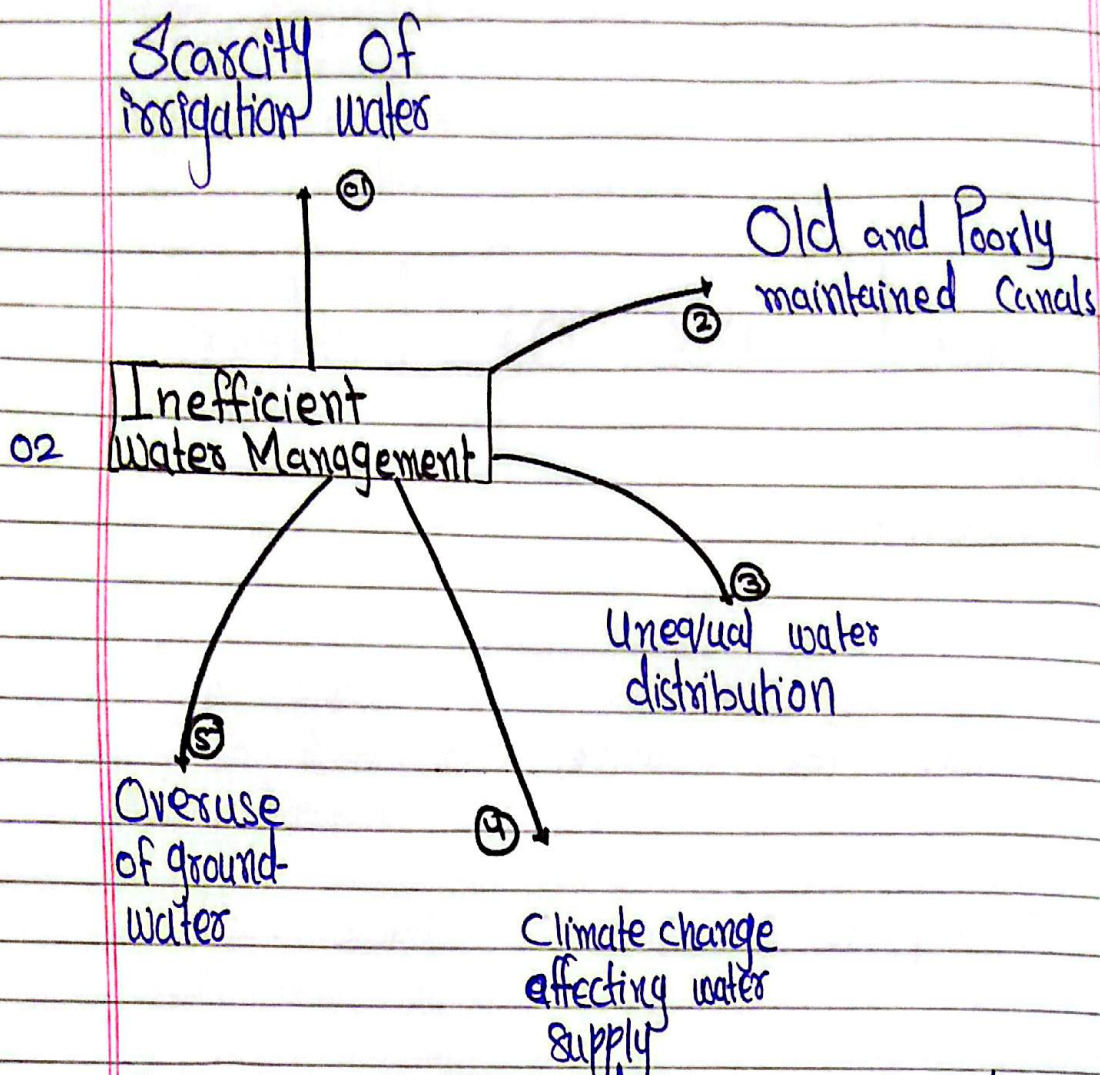 Scarcity of
irrigation water
01
Old and Poorly
maintained Canals
2
Inefficient
Water Management
02
3
Unequal water
distribution
5
Overuse
of ground-
water
4
Climate change
affecting water
supply